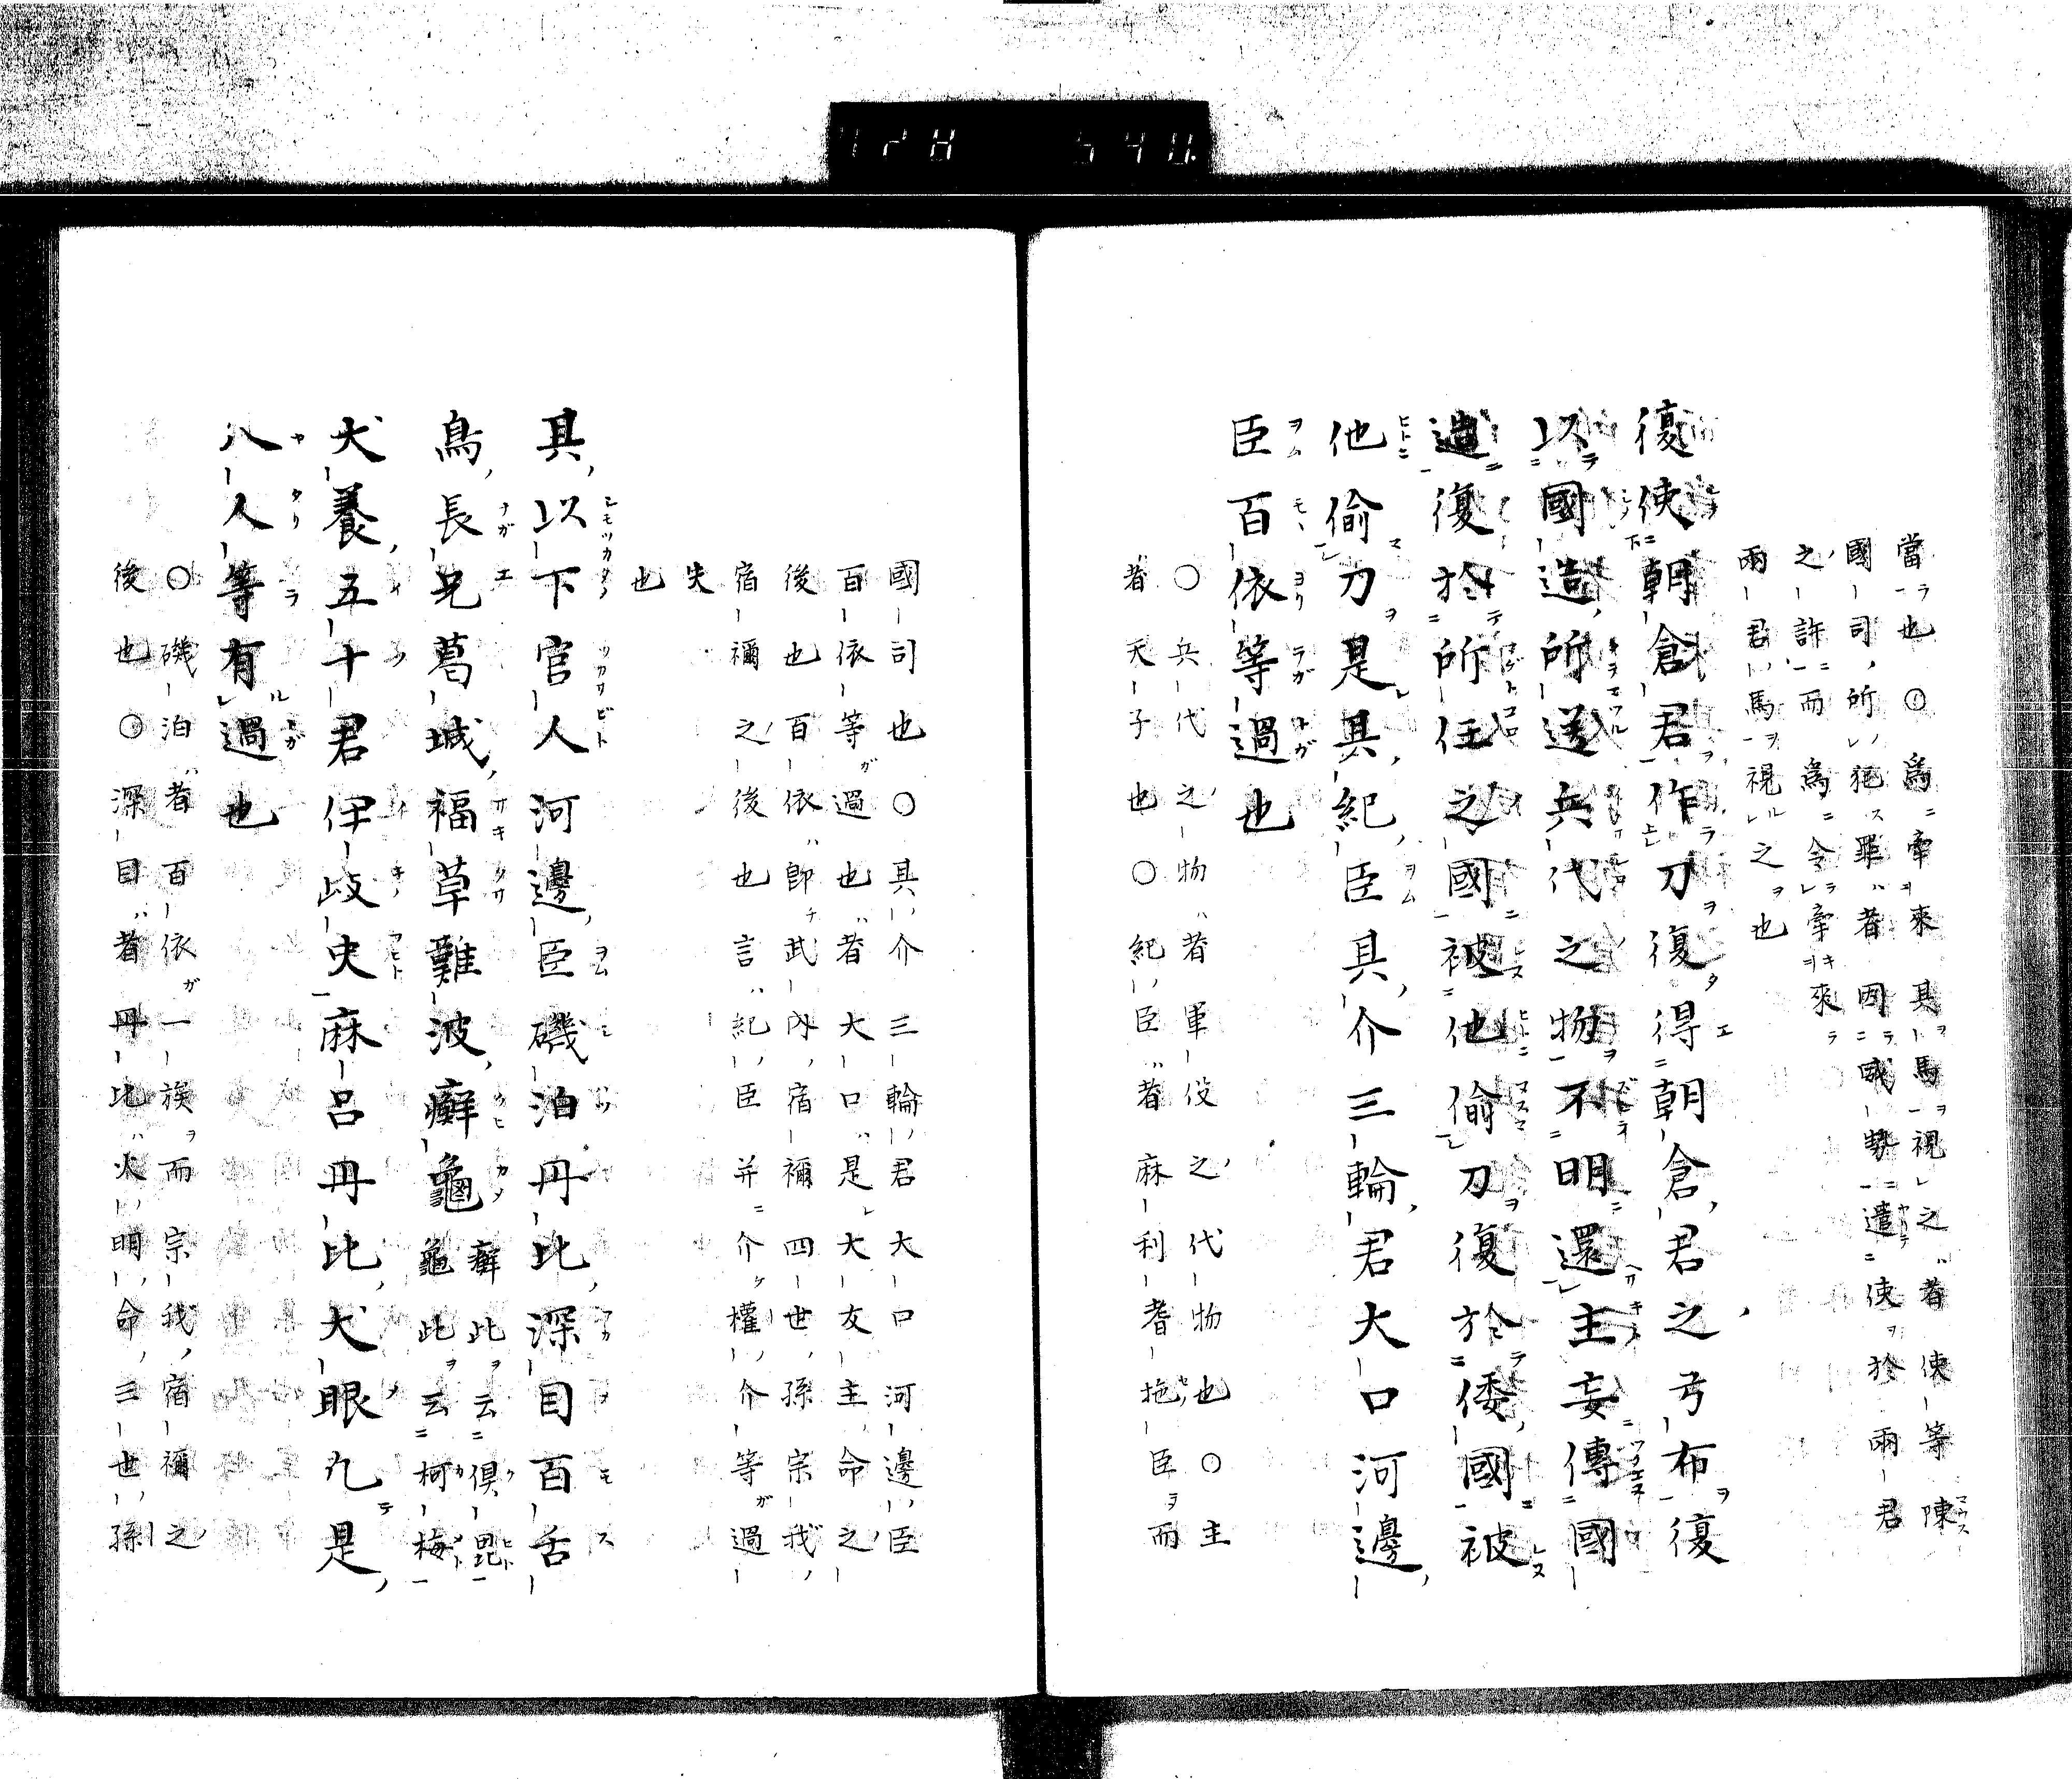 當也○爲牽來其馬視之者使等陳
國司所犯罪者因威勢遣使於兩君
之許而爲令牽來
兩君馬視之也
復使朝倉君作刀復得朝倉君之弓布復
以國造所送兵代之物不明還主妄傳國
造復於所任之國被他偷刀復於倭國被
他偷刀是其紀臣其介三輪君大口河邊
臣百依等過也
○兵代之物者軍役之代物也○主
者天子也○紀臣者麻利耆拖臣而
國司也○其介三輪君大口河邊臣
百依等過也者大口是大友主命之
後也百依卽武內宿禰四世孫宗我
宿禰之後也言紀臣并介權介等過
失
也
其以下官人河邊臣磯泊丹比深目百舌
鳥長兄葛城福草難波癬龜癬此云俱毘
龜此云柯梅
犬養五十君伊岐史麻呂丹比犬眼凡是
八人等有過也
○磯泊者百依一族而宗我宿禰之
後也○深目者丹比火明命三世孫